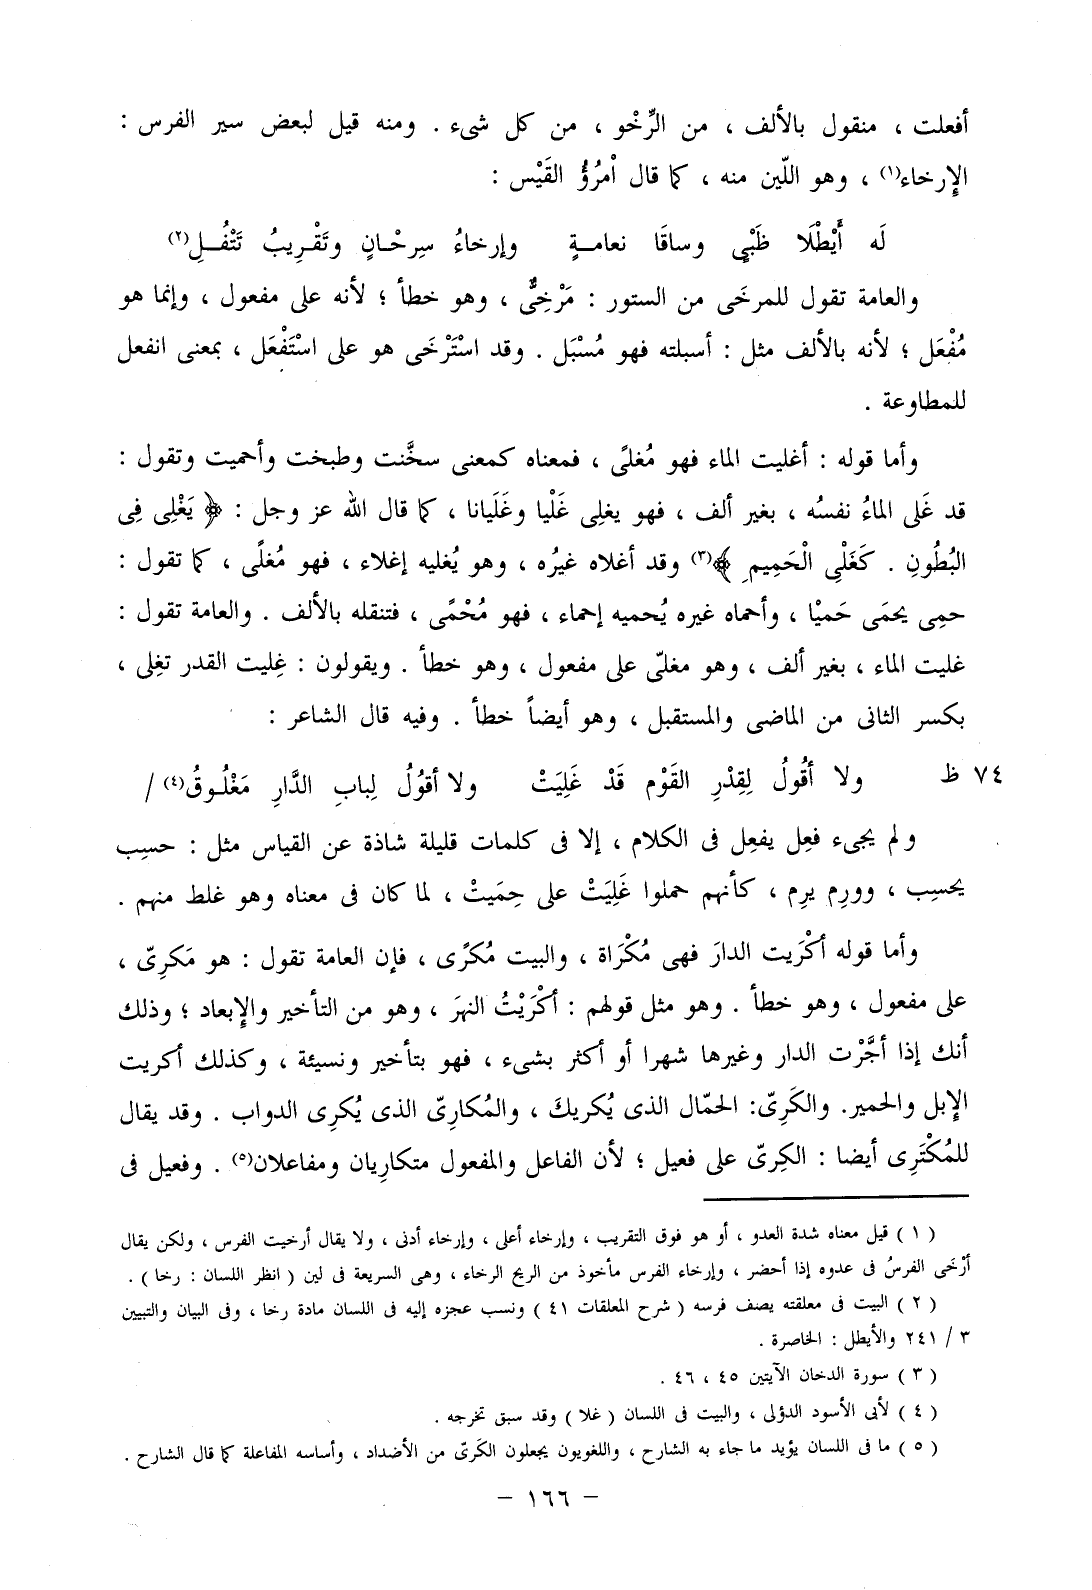 أفعلت ، منقول بالألف ، من الرِّخْو ، من كل شىء . ومنه قيل لبعض سير الفرس :
الإرخاء(١) ، وهو اللّين منه ، كما قال اْمرُؤُ القَيْس :
لَه أَيْطَلَا ظَبْيٍ وساقَا نعامـةٍ وإرخاءُ سِرحْـانٍ وتَقْـرِيبُ تَتْفُـلِ(٢)
والعامة تقول للمرخَى من الستور : مَرْخِىٌّ ، وهو خطأ ؛ لأنه على مفعول ، وإنما هو
مُفْعَل ؛ لأنه بالألف مثل : أسبلته فهو مُسْبَل . وقد اسْتَرْخَى هو على اسْتَفْعَل ، بمعنى انفعل
للمطاوعة .
وأما قوله : أغليت الماء فهو مُغلىً ، فمعناه كمعنى سخَّنت وطبخت وأحميت وتقول :
قد غَلى الماءُ نفسُه ، بغير ألف ، فهو يغلِى غَلْيا وغَلَيانا ، كما قال الله عز وجل : ﴿ يَغْلِى فِى
البُطُونِ . كَغَلْىِ الْحَمِيمِ ﴾(٣) وقد أغلاه غيرُه ، وهو يُغليه إغلاء ، فهو مُغلًى ، كما تقول :
حمِى يحمَى حَميْا ، وأحماه غيره يُحميه إحماء ، فهو مُحْمًى ، فتنقله بالألف . والعامة تقول :
غليت الماء ، بغير ألف ، وهو مغلىّ على مفعول ، وهو خطأ . ويقولون : غِليت القدر تغِلى ،
بكسر الثانى من الماضى والمستقبل ، وهو أيضاً خطأ . وفيه قال الشاعر :
٧٤ ظ ولا أقُولُ لِقِدْرِ القَوْم قَدْ غَلِيَتْ ولا أقوُلُ لِبابِ الدَّارِ مَغْلُـوقُ(٤) /
ولم يجىء فعِل يفعِل فى الكلام ، إلا فى كلمات قليلة شاذة عن القياس مثل : حسِب
يحسِب ، وورِم يرِم ، كأنهم حملوا غَلِيَتْ على حِمَيتْ ، لما كان فى معناه وهو غلط منهم .
وأما قوله أكْرَيت الدارَ فهى مُكْرَاة ، والبيت مُكرًى ، فإن العامة تقول : هو مَكرِىّ ،
على مفعول ، وهو خطأ . وهو مثل قولهم : أكْرَيْتُ النهرَ ، وهو من التأخير والإبعاد ؛ وذلك
أنك إذا أجَّرْت الدار وغيرها شهرا أو أكثر بشىء ، فهو بتأخير ونسيئة ، وكذلك أكريت
الإبل والحمير. والكَرِىّ: الحمّال الذى يُكريكَ ، والمُكارِىّ الذى يُكرِى الدواب . وقد يقال
للمُكْتَرِى أيضا : الكرِىّ على فعيل ؛ لأن الفاعل والمفعول متكارِيان ومفاعلان(٥) . وفعيل فى
( ١ ) قيل معناه شدة العدو ، أو هو فوق التقريب ، وإرخاء أعلى ، وإرخاء أدنى ، ولا يقال أرخيت الفرس ، ولكن يقال
أرْخَى الفرسُ فى عدوه إذا أحضر ، وإرخاء الفرس مأخوذ من الريح الرخاء ، وهى السريعة فى لين ( انظر اللسان : رخا ) .
( ٢ ) البيت فى معلقته يصف فرسه ( شرح المعلقات ٤١ ) ونسب عجزه إليه فى اللسان مادة رخا ، وفى البيان والتبيين
٣ / ٢٤١ والأيطل : الخاصرة .
( ٣ ) سورة الدخان الآيتين ٤٥ ، ٤٦ .
( ٤ ) لأبى الأسود الدؤلى ، والبيت فى اللسان ( غلا ) وقد سبق تخرجه .
( ٥ ) ما فى اللسان يؤيد ما جاء به الشارح ، واللغويون يجعلون الكَرىّ من الأضداد ، وأساسه المفاعلة كما قال الشارح .
– ١٦٦ –